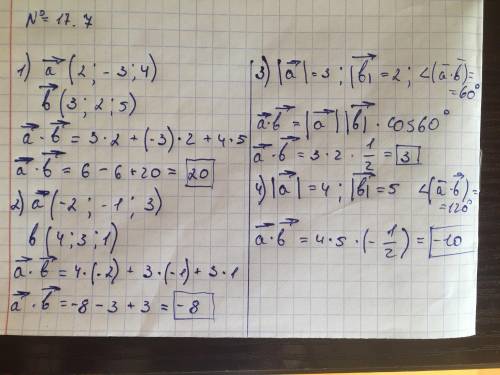 № 17.7
1) a⃗ (2; -3; 4)
b⃗ (3; 2; 5)
a⃗·b⃗ = 3·2 + (-3)·2 + 4·5
a⃗·b⃗ = 6 - 6 + 20 = 20
2) a⃗ (-2; -1; 3)
b (4; 3; 1)
a⃗·b⃗ = 4·(-2) + 3·(-1) + 3·1
a⃗·b⃗ = -8 - 3 + 3 = -8
3) |a⃗| = 3; |b⃗| = 2; ∠(a⃗·b⃗) =
= 60°
a⃗·b⃗ = |a⃗| |b⃗| · cos60°
a⃗·b⃗ = 3·2·1/2 = 3
4) |a⃗| = 4; |b⃗| = 5 ∠(a⃗·b⃗) =
= 120°
a⃗·b⃗ = 4·5·(-1/2) = -10